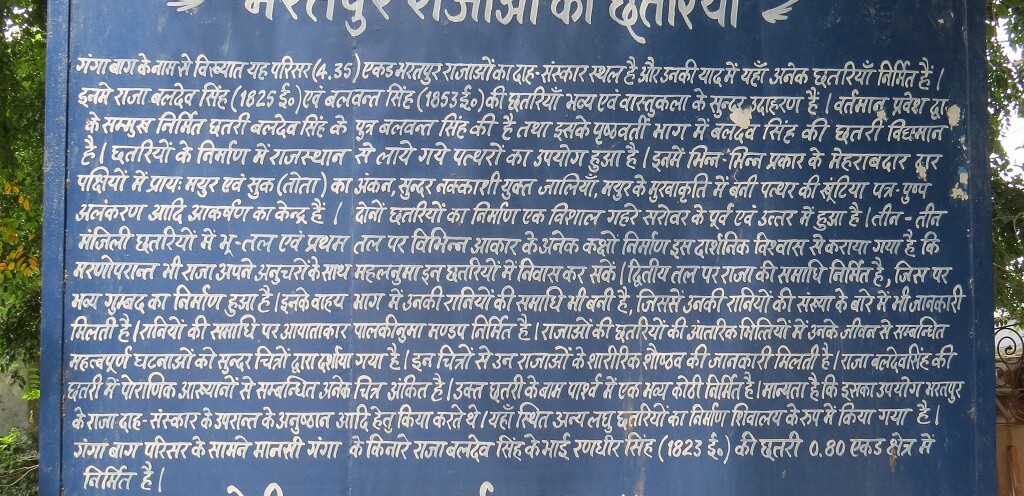 भरतपुर राजाओं की छतरियाँ
गंगा बाग के नाम से विख्यात यह परिसर (4.35) एकड भरतपुर राजाओं का दाह-संस्कार स्थल है और उनकी याद में यहाँ अनेक छतरियाँ निर्मित हैं।
इनमे राजा बलदेव सिंह (1825 ई०) एवं बलवन्त सिंह (1853 ई०) की छतरियाँ भव्य एवं वास्तुकला के सुन्दर उदाहरण है। वर्तमान प्रवेश द्वा
के सम्मुख निर्मित छतरी बलदेव सिंह के पुत्र बलवन्त सिंह की है तथा इसके पृष्ठवर्ती भाग में बलदेव सिंह की छतरी विद्यमान
है। छतरियों के निर्माण में राजस्थान से लाये गये पत्थरों का उपयोग हुआ है। इनमें भिन्न-भिन्न प्रकार के मेहराबदार द्वार
पक्षियों में प्रायः मयुर एवं सुक (तोता) का अंकन, सुन्दर नक्काशी युक्त जालियाँ, मयुर के मुखाकृति में बनी पत्थर की खूंटिया पत्र-पुष्प
अलंकरण आदि आकर्षण का केन्द्र हैं। दोनों छतरियों का निर्माण एक विशाल गहरे सरोवर के पूर्व एवं उत्तर में हुआ है। तीन-तीन
मंजिली छतरियों में भू-तल एवं प्रथम तल पर विभिन्न आकार के अनेक कक्षों निर्माण इस दार्शनिक विश्वास से कराया गया है कि
मरणोपरान्त भी राजा अपने अनुचरों के साथ महलनुमा इन छतरियों में निवास कर सकें। द्वितीय तल पर राजा की समाधि निर्मित है, जिस पर
भव्य गुम्बद का निर्माण हुआ है। इनके वाहय भाग में उनकी रानियों की समाधि भी बनी है, जिससे उनकी रानियों की संख्या के बारे में भी जानकारी
मिलती है। रानियों की समाधि पर आयाताकार पालकीनुमा मण्डप निर्मित है। राजाओं की छतरियों की आंतरिक भित्तियों में उनके जीवन से सम्बन्धित
महत्वपूर्ण घटनाओं को सुन्दर चित्रों द्वारा दर्शाया गया है। इन चित्रों से उन राजाओं के शारीरिक शौष्ठव की जानकारी मिलती है। राजा बलदेव सिंह की
छतरी में पौराणिक आख्यानों से सम्बन्धित अनेक चित्र अंकित है। उक्त छतरी के बाम पार्श्व में एक भव्य कोठी निर्मित है। मान्यता है कि इसका उपयोग भरतपुर
के राजा दाह-संस्कार के उपरान्त के अनुष्ठान आदि हेतु किया करते थे। यहाँ स्थित अन्य लघु छतरियों का निर्माण शिवालय के रूप में किया गया है।
गंगा बाग परिसर के सामने मानसी गंगा के किनारे राजा बलदेव सिंह के भाई रणधीर सिंह (1823 ई०) की छतरी 0.80 एकड क्षेत्र में
निर्मित है।